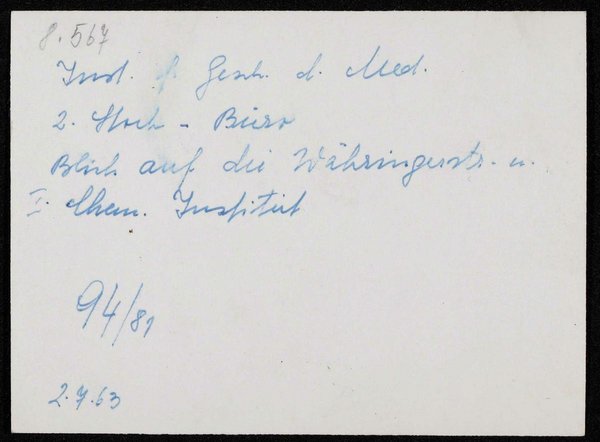 8.567
Inst. f Gesch. d. Med.
2. Stock - Büro
Blick auf die Währingerstr. u.
I. Chem. Institut
94/81
2.7.63